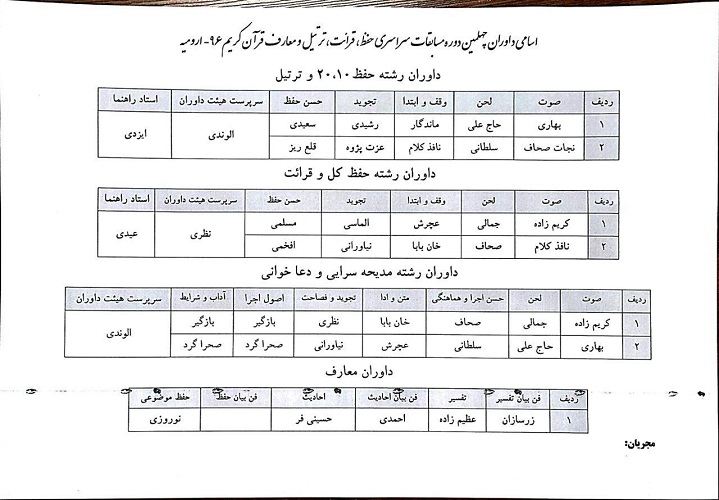 اسامی داوران چهلمین دوره مسابقات سراسری حفظ، قرائت، ترتیل و معارف قرآن کریم ۹۶ - ارومیه
داوران رشته حفظ ۲۰،۱۰ و ترتیل
ردیف صوت لحن وقف و ابتدا تجوید حسن حفظ سرپرست هیئت داوران استاد راهنما
۱ بهاری حاج علی ماندگار رشیدی سعیدی الوندی ایزدی
۲ نجات صحاف سلطانی نافذ کلام عزت پژوه قلع ریز
داوران رشته حفظ کل و قرائت
ردیف صوت لحن وقف و ابتدا تجوید حسن حفظ سرپرست هیئت داوران استاد راهنما
۱ کریم زاده جمالی عچرش الماسی مسلمی نظری عیدی
۲ نافذ کلام صحاف خان بابا نیاورانی افخمی
داوران رشته مدیحه سرایی و دعا خوانی
ردیف صوت لحن حسن اجرا و هماهنگی متن و ادا تجوید و فصاحت اصول اجرا آداب و شرایط سرپرست هیئت داوران
۱ کریم زاده جمالی صحاف خان بابا نظری بازگیر بازگیر الوندی
۲ بهاری حاج علی سلطانی عچرش نیاورانی صحرا گرد صحرا گرد
داوران معارف
ردیف فن بیان تفسیر تفسیر فن بیان احادیث احادیث فن بیان حفظ حفظ موضوعی
۱ زرسازان عظیم زاده احمدی حسینی فر نوروزی
مجریان: